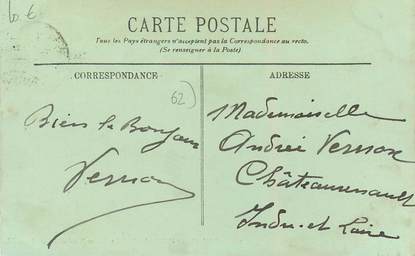 10 €
CARTE POSTALE
Tous les Pays étrangers n'acceptent pas la Correspondance au recto.
(Se renseigner à la Poste)
CORRESPONDANCE
ADRESSE
62
Bien le Bonjour
Vernon
Mademoiselle
Andrée Vernon
Châteaurenault
Indre-et-Loire